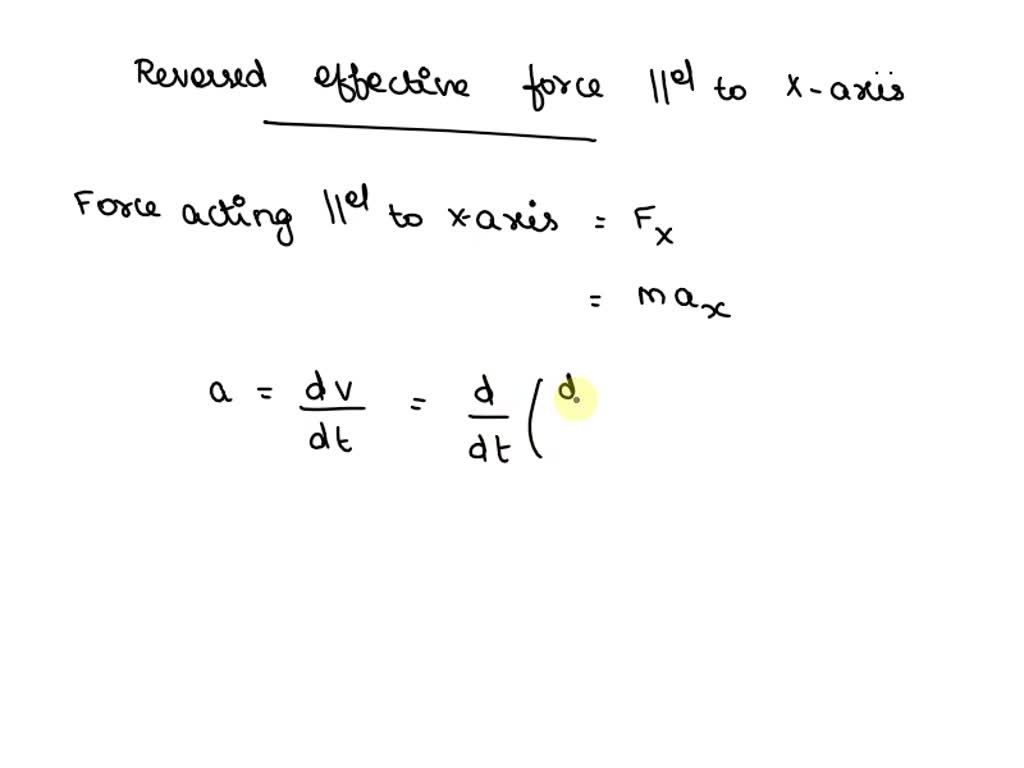 Reversed effective force ||el to x-axis
Force acting ||el to x-axis = Fx
= max
a = dv/dt = d/dt (d